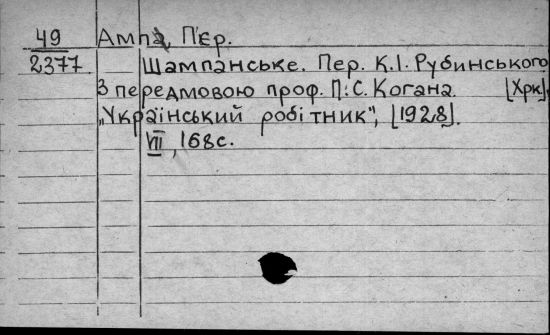 49 Ампа, П'єр.
2377 Шампанське. Пер. К.І. Рубинського
З передмовою проф. П.С. Когана. [Хрк],
„Український робітник", [1928].
VII, 168с.